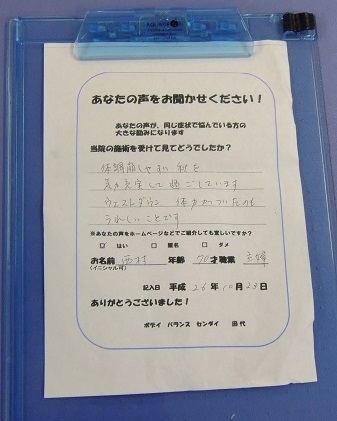 あなたの声をお聞かせください！
あなたの声が、同じ症状で悩んでいる方の
大きな励みになります
当院の施術を受けて見てどうでしたか？
体調崩しやすい秋を
充実して過ごしています
ウェストダウン 体力がついたのも
うれしいことです
※あなたの声をホームページなどでご紹介しても宜しいですか？
□ はい □ 匿名 □ ダメ
お名前 西村 年齢 70才 職業 主婦
(イニシャル可)
記入日 平成 26年10月23日
ありがとうございました！
ボディ バランス センダイ 田代